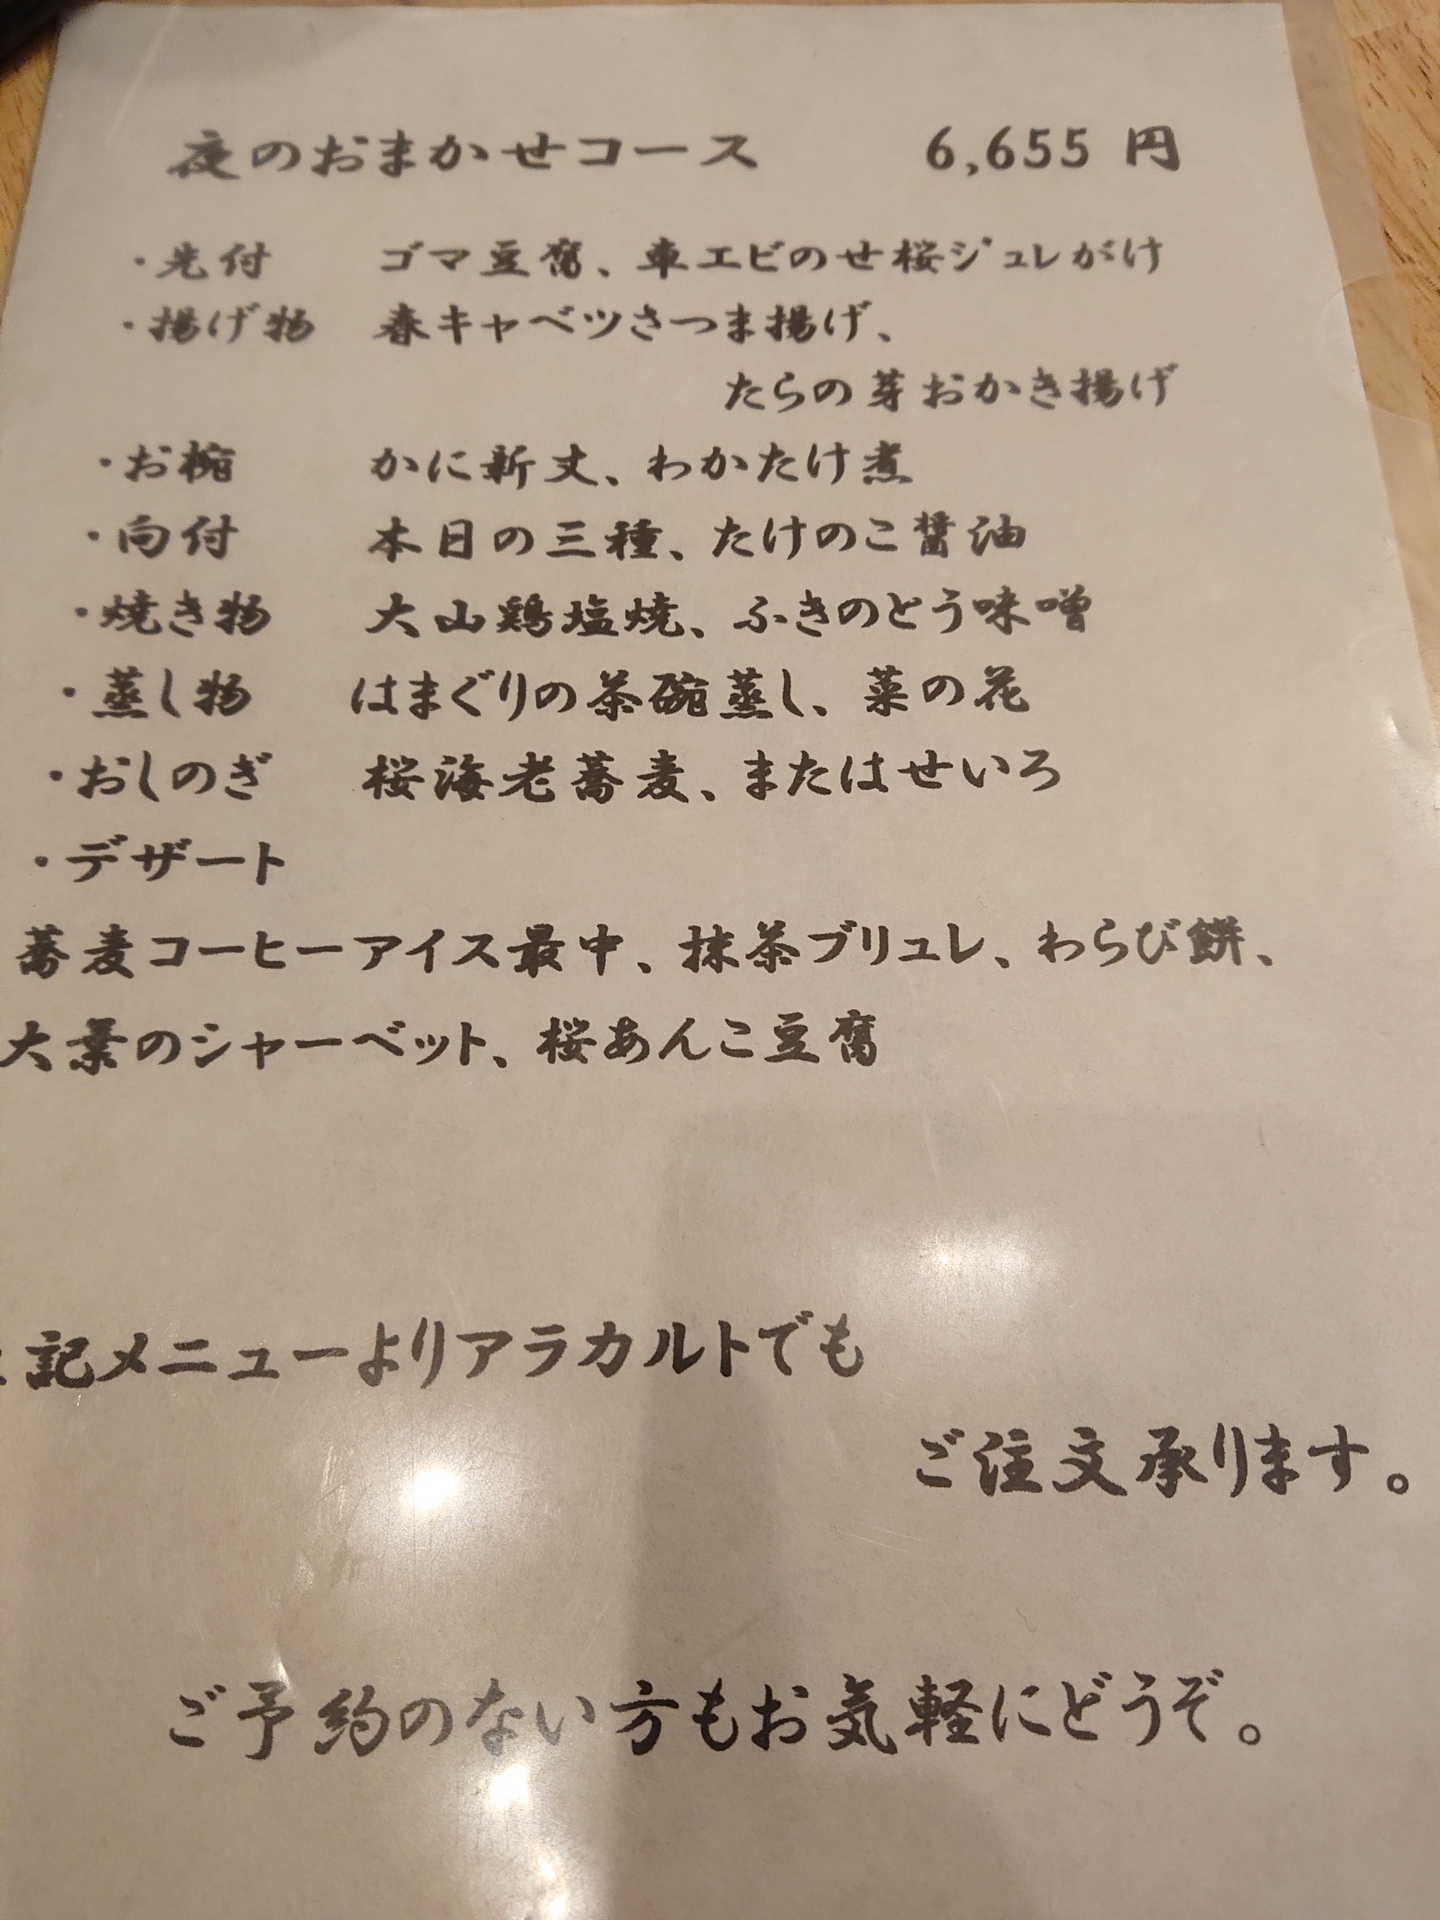 夜のおまかせコース 6,655 円
・先付 ゴマ豆腐、車エビのせ桜ジュレがけ
・揚げ物 春キャベツさつま揚げ、
たらの芽おかき揚げ
・お椀 かに新丈、わかたけ煮
・向付 本日の三種、たけのこ醤油
・焼き物 大山鶏塩焼、ふきのとう味噌
・蒸し物 はまぐりの茶碗蒸し、菜の花
・おしのぎ 桜海老蕎麦、またはせいろ
・デザート
蕎麦コーヒーアイス最中、抹茶ブリュレ、わらび餅、
大葉のシャーベット、桜あんこ豆腐
記メニューよりアラカルトでも
ご注文承ります。
ご予約のない方もお気軽にどうぞ。